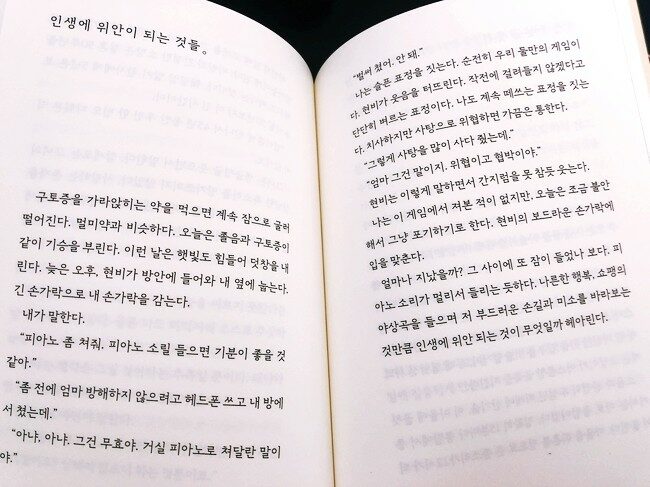 인생에 위안이 되는 것들。
구토증을 가라앉히는 약을 먹으면 계속 잠으로 굴러
떨어진다. 멀미약과 비슷하다. 오늘은 졸음과 구토증이
같이 기승을 부린다. 이런 날은 햇빛도 힘들어 덧창을 내
린다. 늦은 오후, 현비가 방안에 들어와 내 옆에 눕는다.
긴 손가락으로 내 손가락을 감는다.
내가 말한다.
“피아노 좀 쳐줘, 피아노 소릴 들으면 기분이 좋을 것
같아.”
“좀 전에 엄마 방해하지 않으려고 헤드폰 쓰고 내 방에
서 쳤는데.”
“아냐, 아냐. 그건 무효야. 거실 피아노로 쳐달란 말이
야.”
“벌써 쳤어. 안 돼.”
나는 슬픈 표정을 짓는다. 순전히 우리 둘만의 게임이
다. 현비가 웃음을 터뜨린다. 작전에 걸려들지 않겠다고
단단히 벼르는 표정이다. 나도 계속 떼쓰는 표정을 짓는
다. 치사하지만 사탕으로 위협하면 가끔은 통한다.
“그렇게 사탕을 많이 사다 줬는데.”
“엄마 그건 말이지. 위협이고 협박이야.”
현비는 이렇게 말하면서 간지럼을 못 참듯 웃는다.
나는 이 게임에서 져본 적이 없지만, 오늘은 조금 불안
해서 그냥 포기하기로 한다. 현비의 부드러운 손가락에
입을 맞춘다.
얼마나 지났을까? 그 사이에 또 잠이 들었나 보다. 피
아노 소리가 멀리서 들리는 듯하다. 나른한 행복, 쇼팽의
야상곡을 들으며 저 부드러운 손길과 미소를 바라보는
것만큼 인생에 위안 되는 것이 무엇일까 헤아린다.